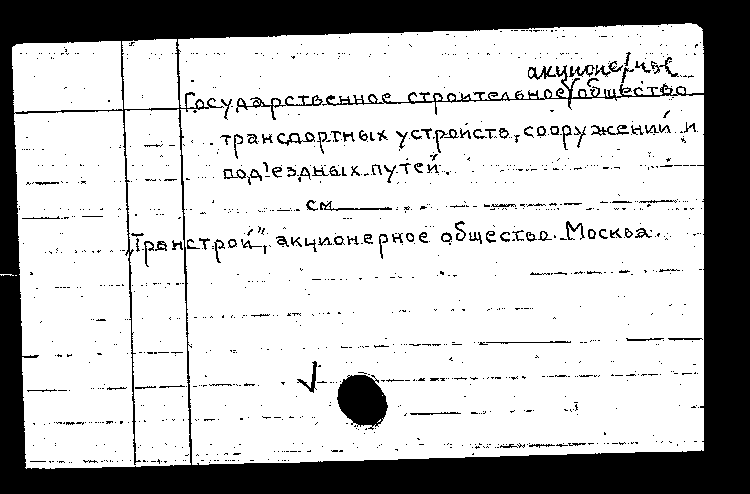 Государственное строительное акционерное общество
транспортных устройств, сооружений и
под'ездных путей.
см
„Транстрой", акционерное общество. Москва.